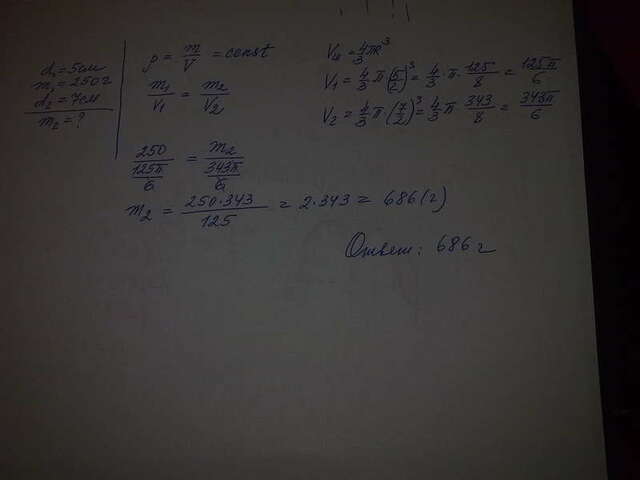 d₁ = 5см
m₁ = 250г
d₂ = 7см
m₂ = ?
ρ = m/V = const
m₁/V₁ = m₂/V₂
Vш = 4/3 πR³
V₁ = 4/3 π (5/2)³ = 4/3 · π · 125/8 = 125π/6
V₂ = 4/3 π (7/2)³ = 4/3 π 343/8 = 343π/6
250/(125π/6) = m₂/(343π/6)
m₂ = 250·343/125 = 2·343 = 686(г)
Ответ: 686г